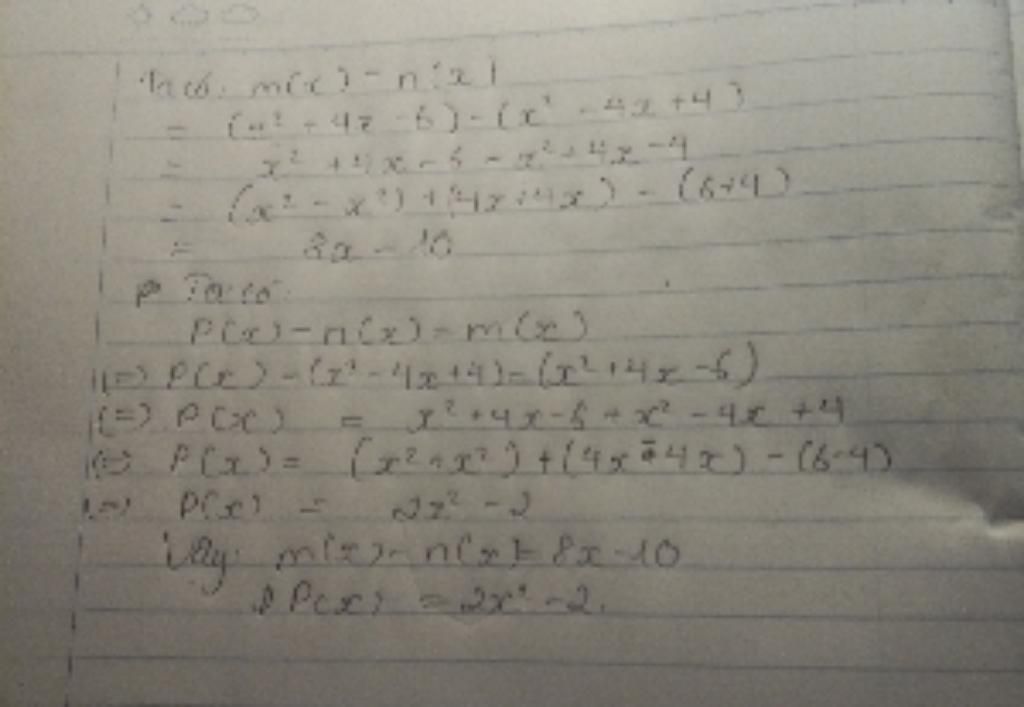 Ta có: m(x) - n(x)
= (x² + 4x - 6) - (x² - 4x + 4)
= x² + 4x - 6 - x² + 4x - 4
= (x² - x²) + (4x + 4x) - (6+4)
= 8x - 10
Ta có:
P(x) - n(x) = m(x)
(=) P(x) - (x² - 4x + 4) = (x² + 4x - 6)
(=) P(x) = x² + 4x - 6 + x² - 4x + 4
(=) P(x) = (x² + x²) + (4x - 4x) - (6-4)
(=) P(x) = 2x² - 2
Vậy: m(x) - n(x) = 8x - 10
P(x) = 2x² - 2.